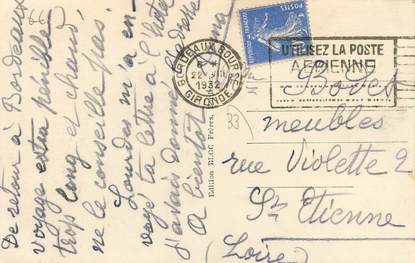 De retour à Bordeaux
voyage extra pénible
trop long et chaud
ne le conseille pas.
Lourdes m'a en-
voyé ta lettre à l'hôtel
j'avais donné l'adresse
A bientôt
Edition BLOC Frères,
BORDEAUX BOURSE
22
1932
GIRONDE
POSTES
UTILISEZ LA POSTE
AERIENNE
meubles
rue Violette 2
St Etienne
(Loire)